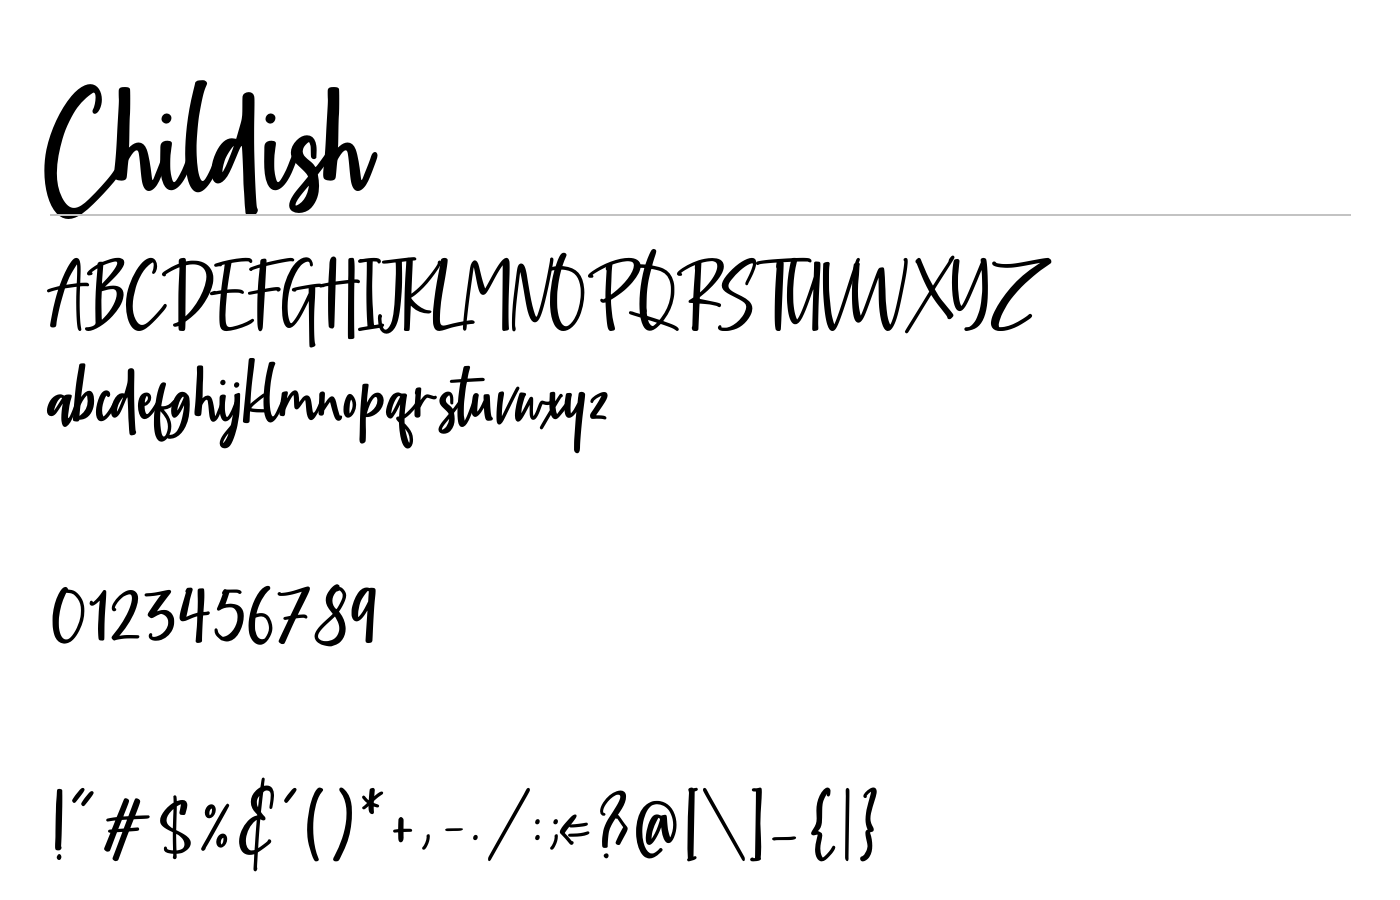 Childish
ABCDEFGHIJKLMNOPQRSTUVWXYZ
abcdefghijklmnopqrstuvwxyz
0123456789
!"#$%&'()*+,-./:;<=>?@[\]_{|}